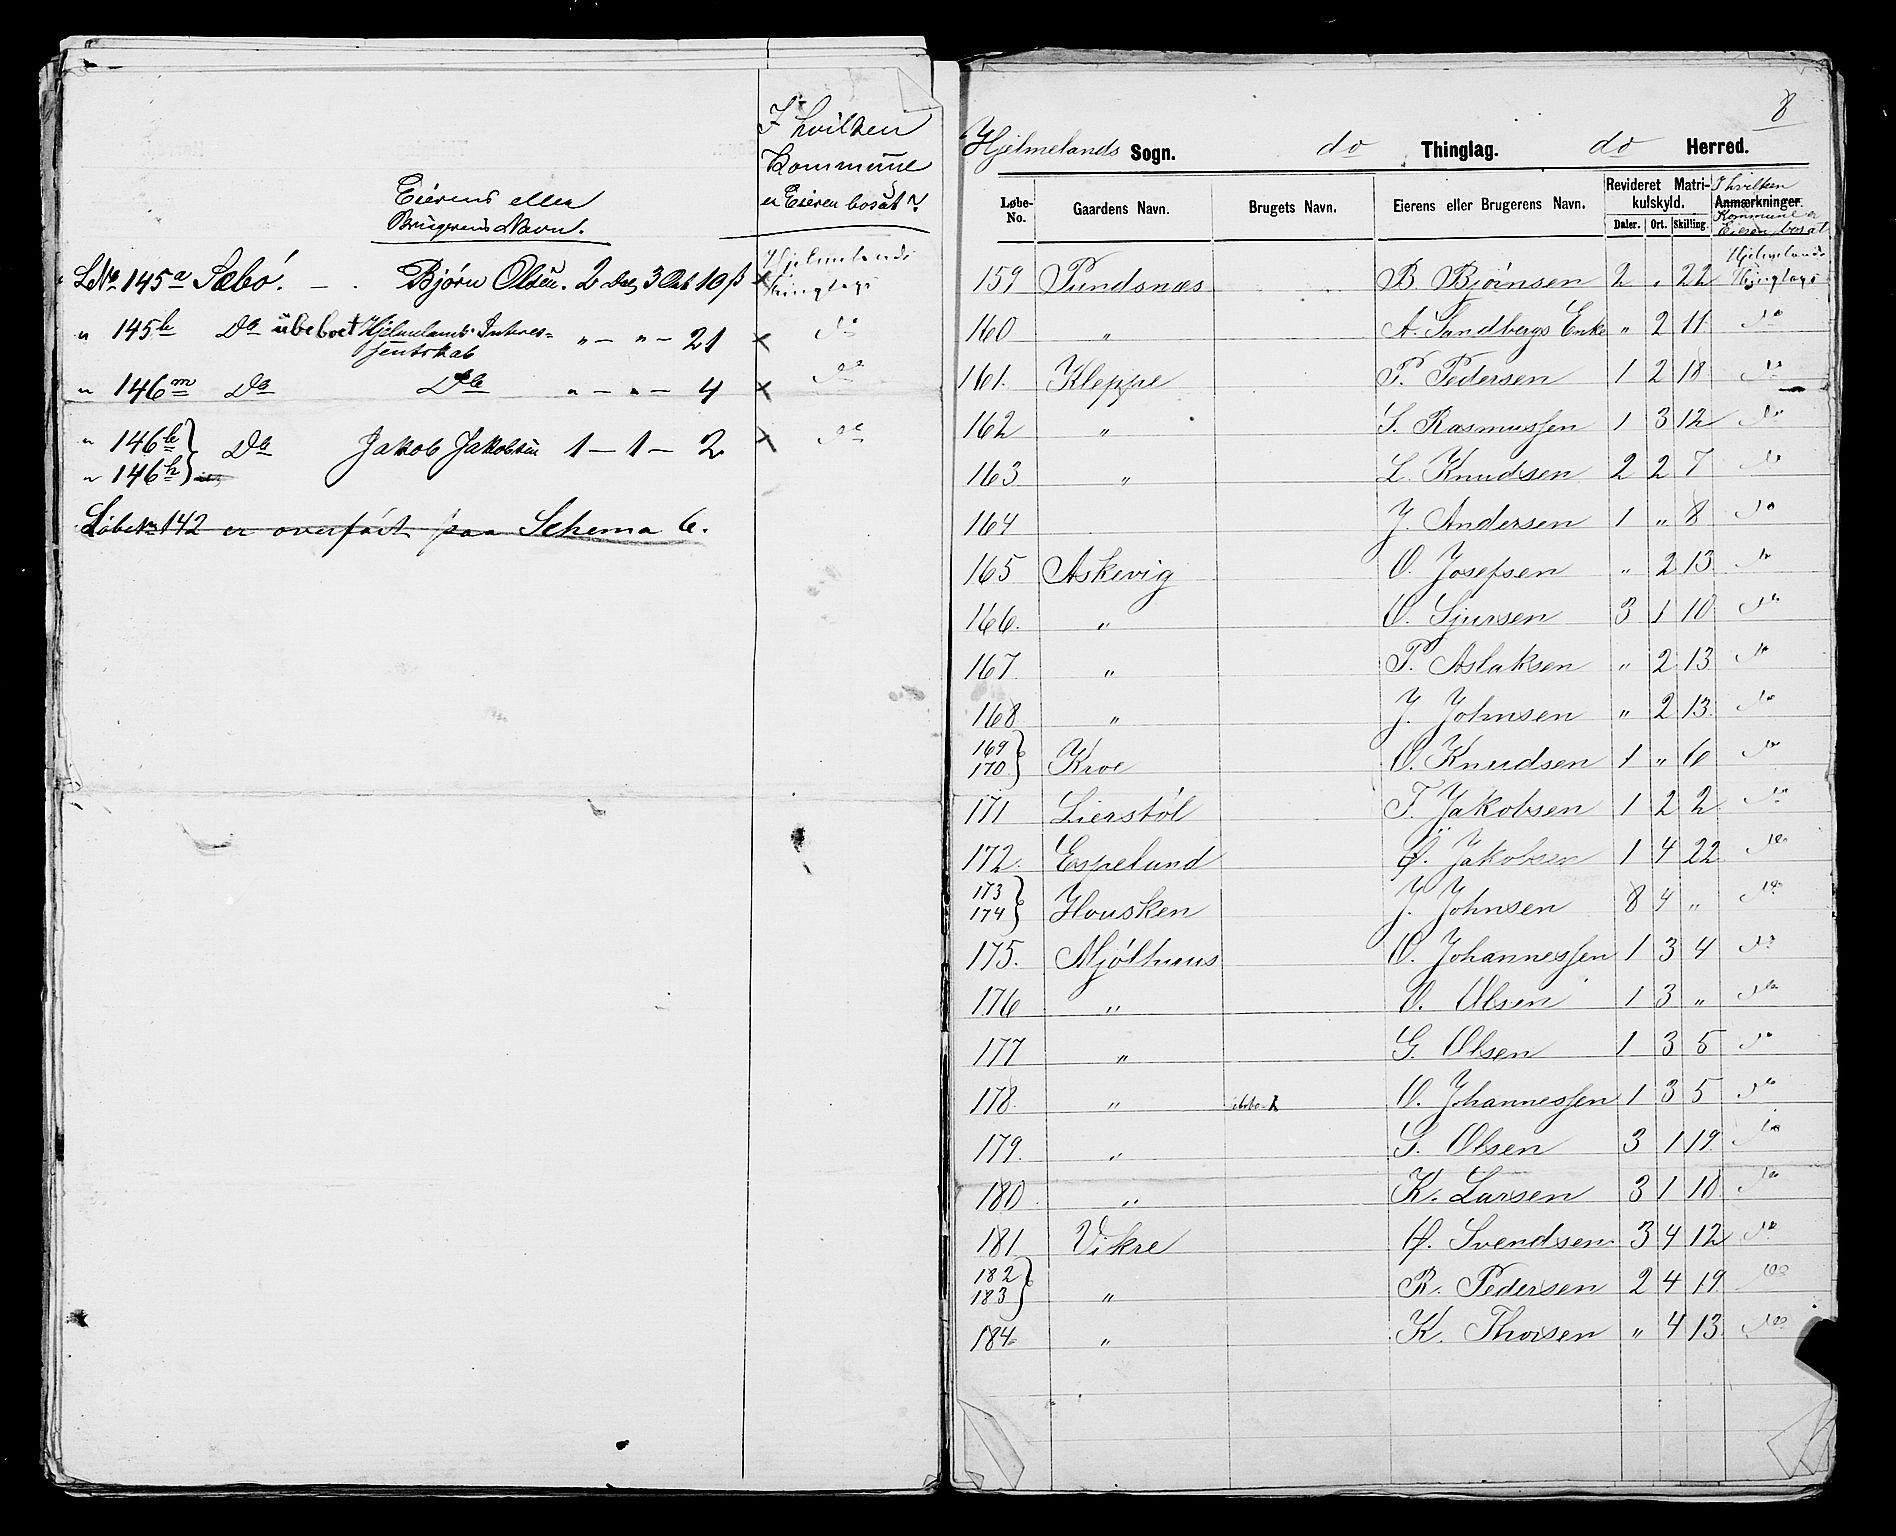 I hvilken
Kommune
er Eieren bosat?
Eierens eller
Brugerens Navn.
LNo 145a Sæbø. — Bjørn Olsen. 2 Dal, 3 Ort 10 ß × Hjelmelands Thinglags
" 145b Do ubeboet Hjelmelands Interes-
sentskab " — " — 21 × Do
" 146m Do Do " — " — 4 × Do
" 146b } Do Jakob Jakobsen 1 — 1 — 2 × Do
" 146h }
LøbeNo 142 er overført paa Schema 6.
8
Hjelmelands Sogn. do Thinglag. do Herred.
Løbe-No. Gaardens Navn. Brugets Navn. Eierens eller Brugerens Navn. Revideret Matrikulskyld. Daler. Ort. Skilling. Anmærkninger. I hvilken Kommune er Eieren bosat
159 Pundsnæs B. Bjørnsen 2 " 22 Hjelmelands Thinglags
160 " A. Sandbergs Enke " 2 11 Do
161. Kleppe P. Pedersen 1 2 18 Do
162 " S. Rasmussen 1 3 12 Do
163 " L. Knudsen 2 2 7 Do
164 J. Andersen 1 " 8 Do
165 Askevig O. Josefsen " 2 13 Do
166. " O. Sjursen 3 1 10 Do
167. " P. Aslaksen " 2 13 Do
168 " J. Johnsen " 2 13. Do
169 } Kroe O. Knudsen 1 " 6 Do
170 }
171 Lierstøl T. Jakobsen 1 2 2 Do
172. Espelund Ø. Jakobsen 1 4 22 Do
173 } Housken J. Johnsen 8 4 " Do
174 }
175. Mjølhuus O. Johannessen 1 3 4 Do
176 " O. Olsen 1 3 " Do
177 " G. Olsen 1 3 5 Do
178. " O. Johannessen 1 3 5 Do
179. " G. Olsen 3 1 19. Do
180 " K. Larsen 3 1 10 Do
181 Vikre Ø. Svendsen 3 4 12 Do
182 } " R. Pedersen 2 4 19 Do
183 }
184 " K. Thorsen " 4 13. Do